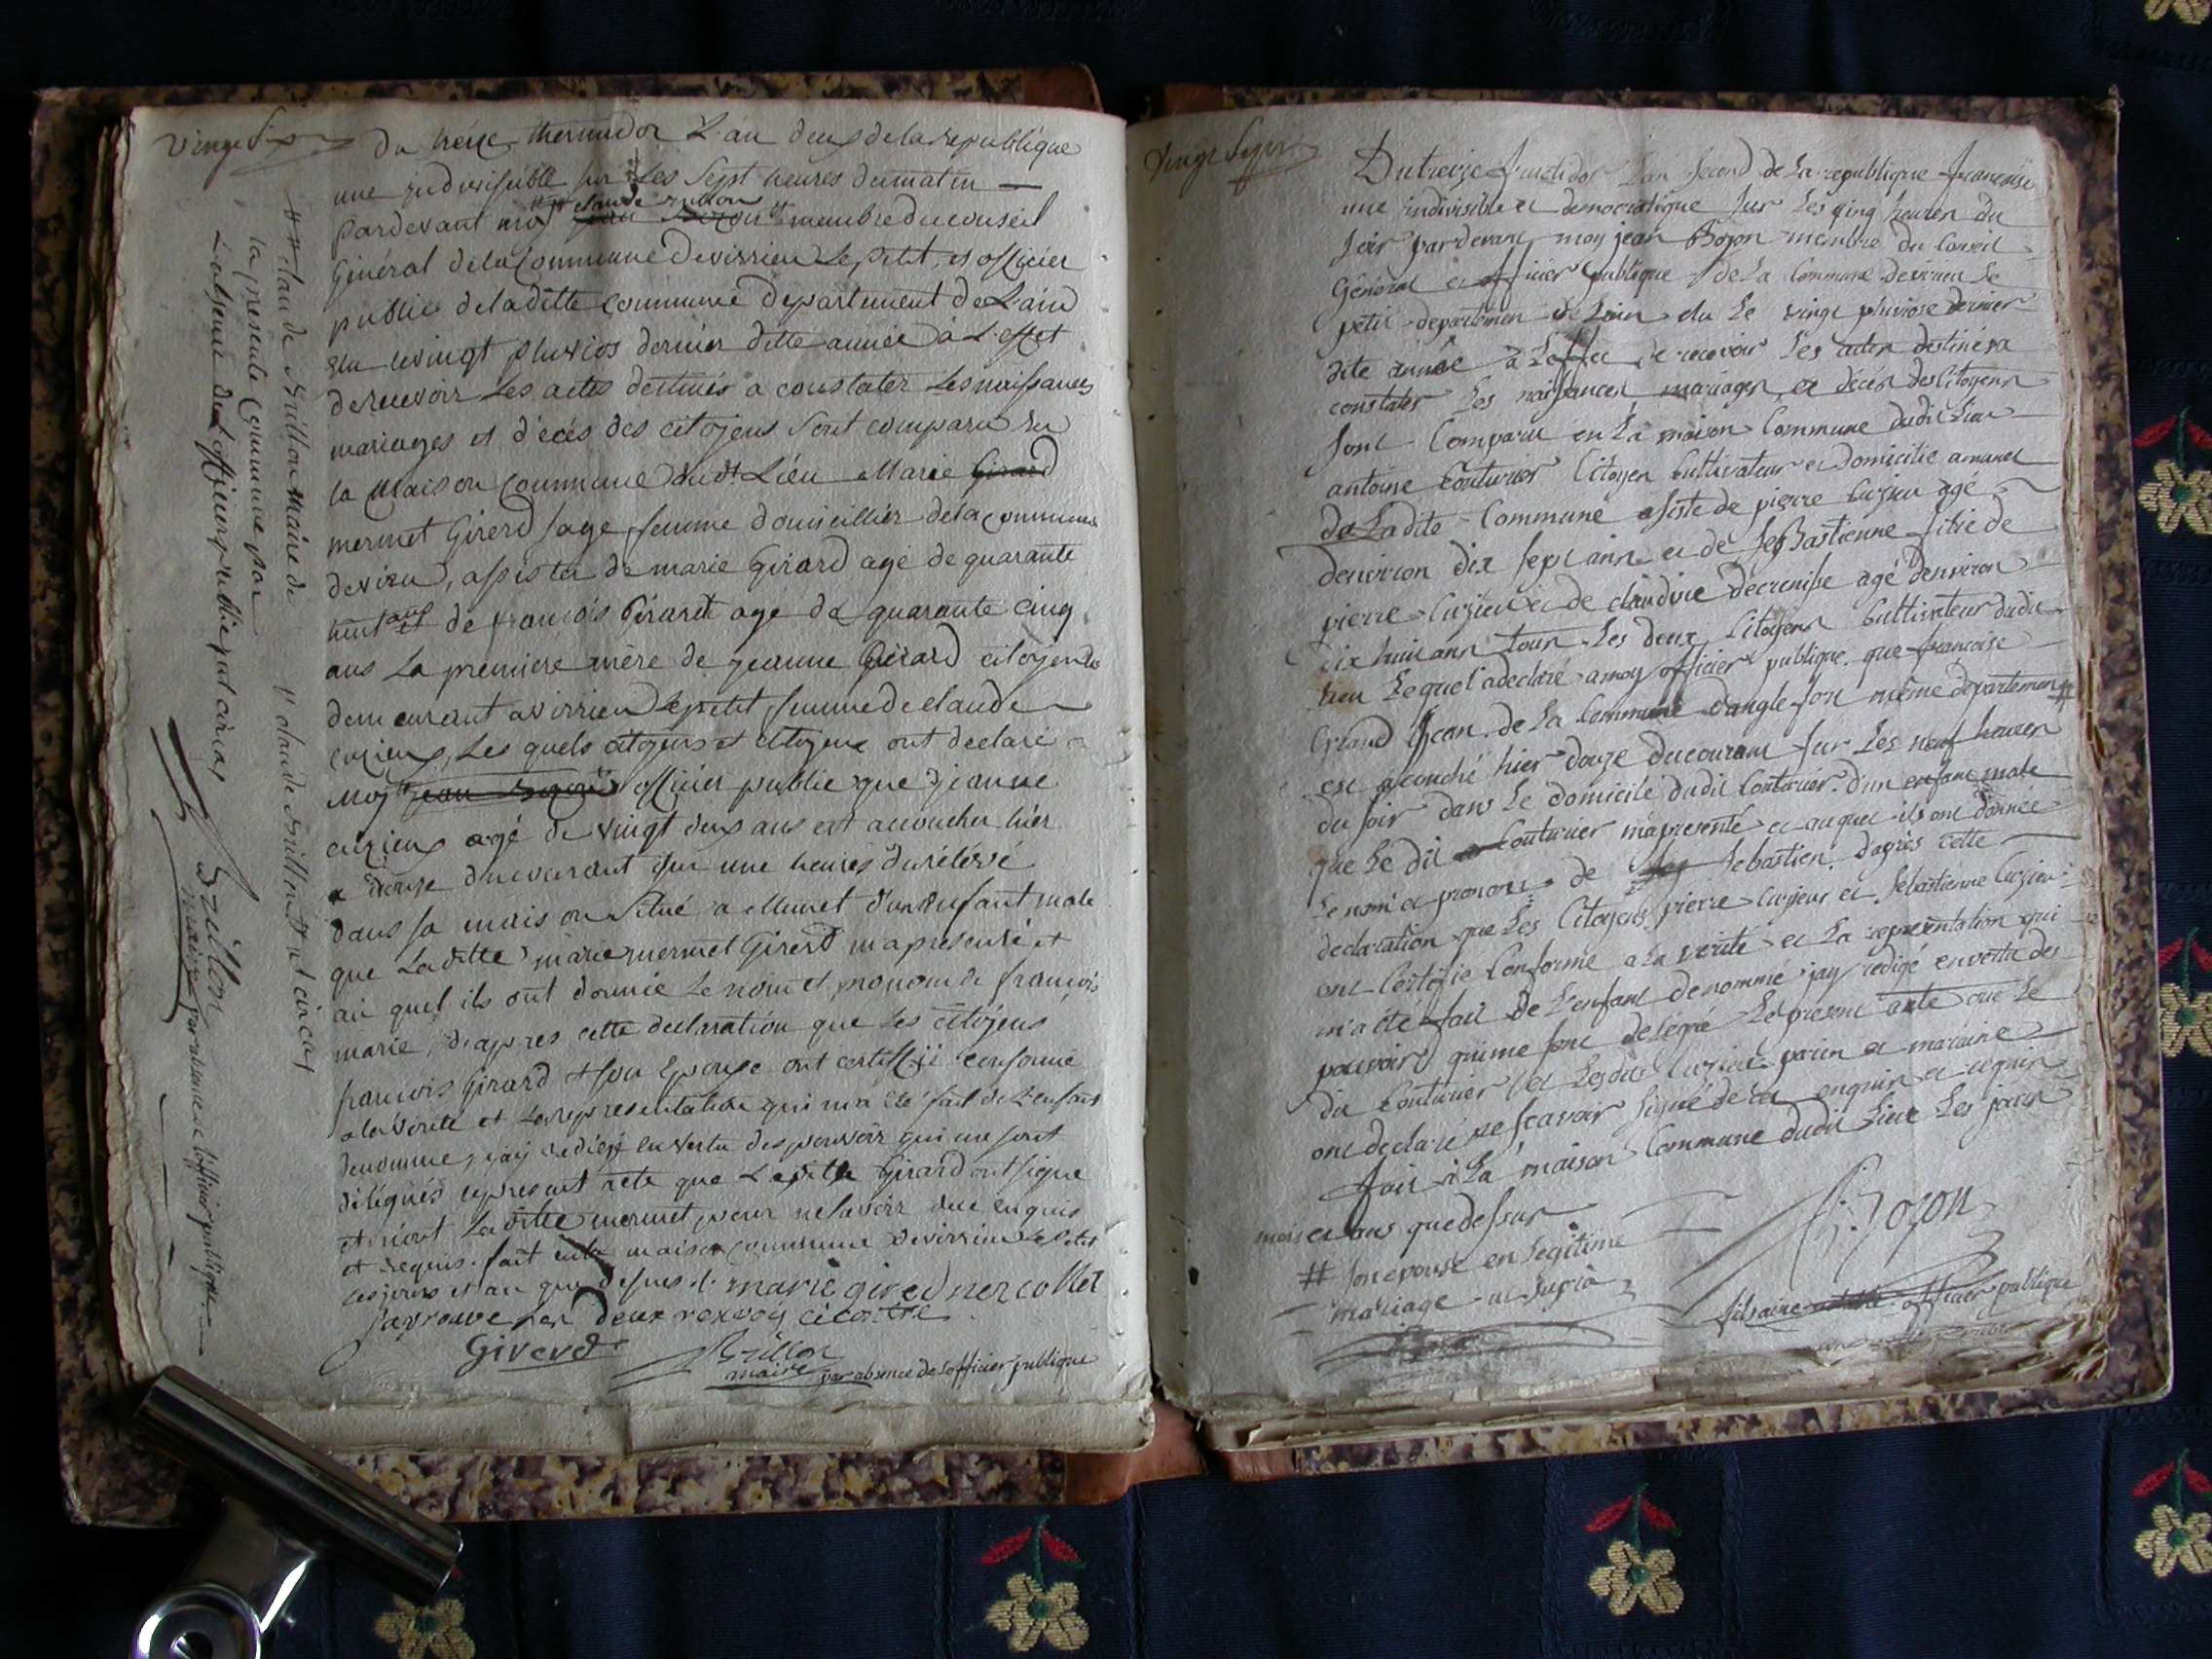 vingt Six
Du treize thermidor L'an deux de la republique
une indivisible sur Les Sept heures du matin
pardevant moy claude brillon membre du conseil
Général de la Commune de virrieu Le petit, et officier
public de la ditte commune departement de L'ain
elu le vingt pluvios dernier ditte année à L'effet
de recevoir Les actes destinés a constater Les naissances
mariages et décès des citoyens Sont comparu en
la Maison Commune dudt Lieu Marie Girard
mermet Girerd Sage femme domicillier de la Commune
de virieu, assister de marie Girard agé de quarante
huit ans et de francois Girardt agé de quarante cinq
ans La premiere mère de jeanne Girard citoyenne
demeurant a virrieu Le petit femme de claude
curieux, Les quels citoyens et citoyene ont declaré a
Moy jean Bozon officier public que jeanne
curieux agé de vingt deux ans est accoucher hier
douze du courant sur une heures
dans sa maison Situé a Munet d'un enfant male
que La ditte marie mermet Girerd m'a presenté et
au quel ils ont donnée Le nom et pronom de francois
marie, d'apres cette declaration que Les citoyens
francois Girard et son Epouse ont certiffié conforme
a la vérité et La representation qui m'a été fait de L'enfant
denommé, j'ay redigé en vertu des pouvoir qui me sont
délégués le present acte que Girard ont signé
et non La ditte mermet pour ne savoir de ce enquis
et requis. fait en la maison commune de virrieu Le Petit
Les jours et an que dessus. marie girerd nercollet
japrouve Les deux renvoy ci contre
Girerd Brillon
maire par absence de Lofficier publique
## claude Brillon Maire de
la presente Commune par
L'absence de L'officier public
// claude Brillon
Brillon
maire par absence de Lofficier publique
vingt Sept
Du treize fructidor L'an Second de La republique francaise
une indivisible et democratique Sur Les cinq heures du
Soir pardevant moy jean Bozon membre du Conseil
Général et officier publique de La Commune de virieu Le
petit departement de Lain elu Le vingt pluviose dernier
dite année a Leffet de recevoir Les actes destinés a
constater Les naissances mariages et décès des Citoyens
Sont Comparu en La maison Commune dudit Lieu
antoine Couturier Citoyen Cultivateur et domicilié a munet
de Ladite Commune asisté de pierre Curzieu agé
denviron dix Sept ans et de SeBastienne fille de
pierre Curzieu et de claudine agé denviron
dix huit ans tous Les deux Citoyens Cultivateur dudit
Lieu Lequel a declaré a moy officier publique que francoise
Jean de La Commune dangle fon même departement #
est acouché hier douze du courant sur Les neuf heures
du soir dans Le domicile dudit Couturier d'un enfant male
que Le dit Couturier ma presenté et auquel ils ont donnée
Le nom et pronom de Sebastien. d'aprés cette
declaration que Les Citoyens pierre Curzieu et Sebastienne Curzieu
ont Certifie Conforme a La verité et La representation qui
m'a été fait de L'enfant denommé jay redigé en vertu des
pouvoir qui me sont delegué Le present acte que Le
dit Couturier et Lesdit Curzieu parin et maraine
ont declaré ne scavoir Signé de ce enquis et requis
fait à La maison Commune dudit Lieu Les jour
mois et ans que dessus
# Son epouse en Legitime
mariage
J. Bozon
officier publique